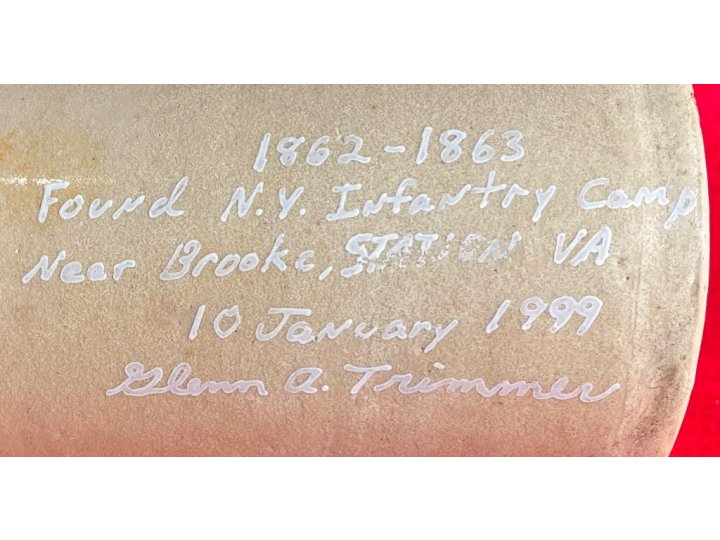 1862-1863
Found N.Y. Infantry Camp
Near Brooke, STATION VA
10 January 1999
Glenn A. Trimmer